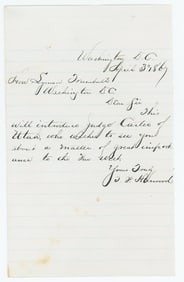 Washington D.C.
April 3d 1867
Hon Lyman Trumbull
Washington D.C.
Dear Sir
This
will introduce Judge
Utah, who wishes to see you
about a matter of great import
ance to the
Yours Truly